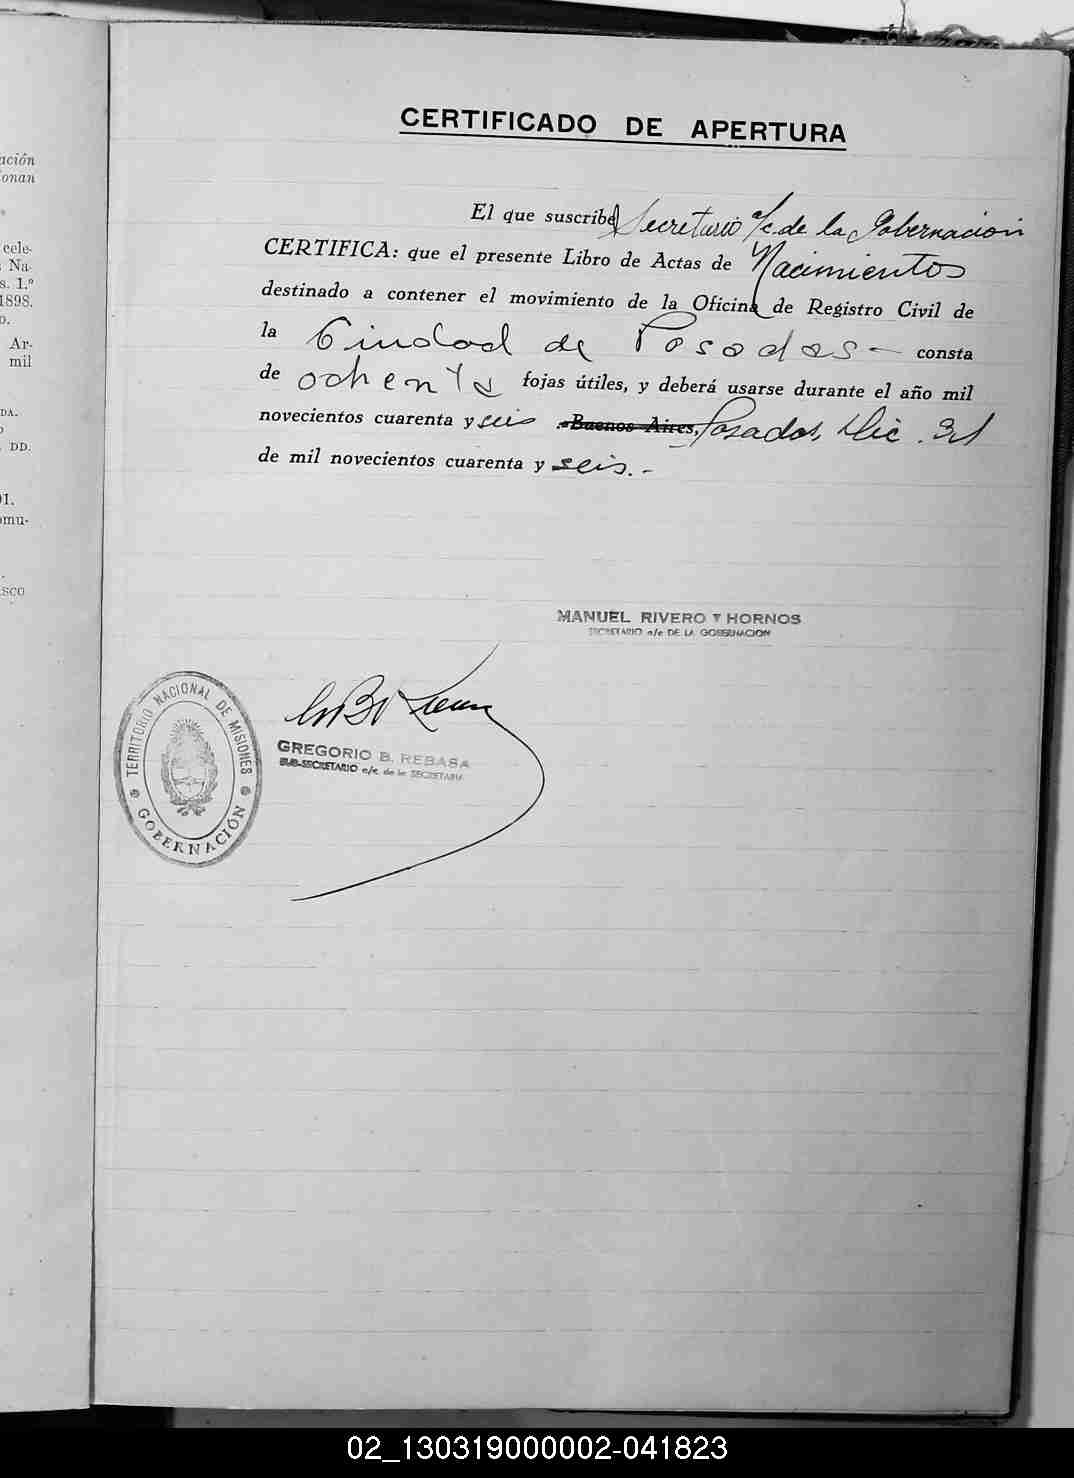 ación
onan
cele-
Na-
s. 1.º
1898.
o.
Ar-
mil
DA.
DD.
01.
omu-
sco
CERTIFICADO DE APERTURA
El que suscribe Secretario a/c. de la Gobernación
CERTIFICA: que el presente Libro de Actas de Nacimientos
destinado a contener el movimiento de la Oficina de Registro Civil de
la Ciudad de Posadas — consta
de ochenta fojas útiles, y deberá usarse durante el año mil
novecientos cuarenta y seis Buenos Aires, Posadas, Dic. 31
de mil novecientos cuarenta y seis.-
MANUEL RIVERO Y HORNOS
SECRETARIO a/c DE LA GOBERNACION
TERRITORIO NACIONAL DE MISIONES
GOBERNACIÓN
GREGORIO B. REBASA
SUB-SECRETARIO a/c. de la SECRETARIA
02_130319000002-041823